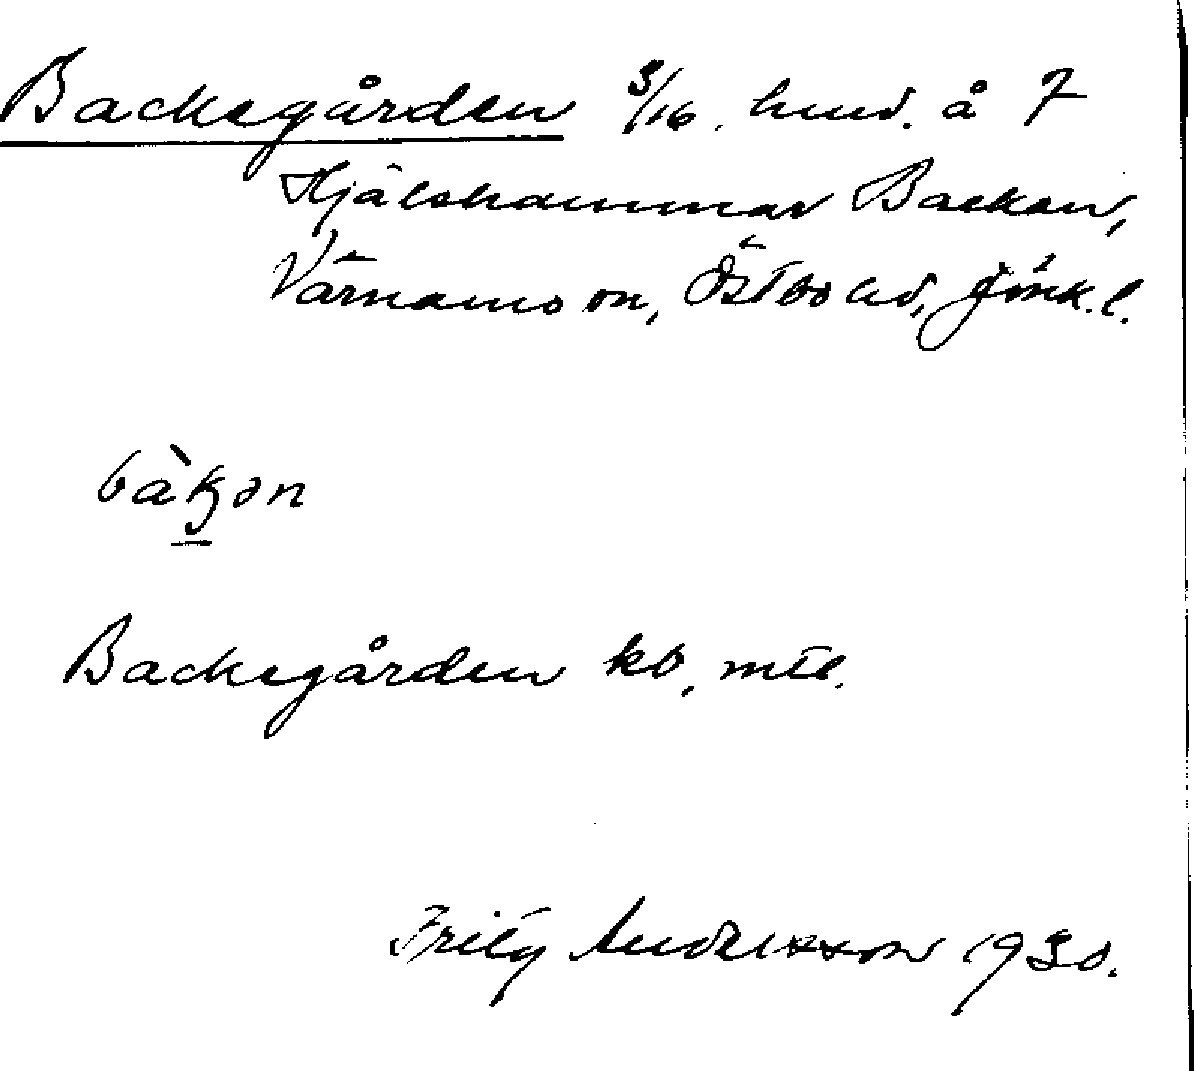 Backegården 3/16. hmd. å 7
Hjälshammar Backen,
Värnamo sn, Östbo hd, Jönk. l.
bàkən
Backegården kb, mtl.
Fritz Andersson 1930.